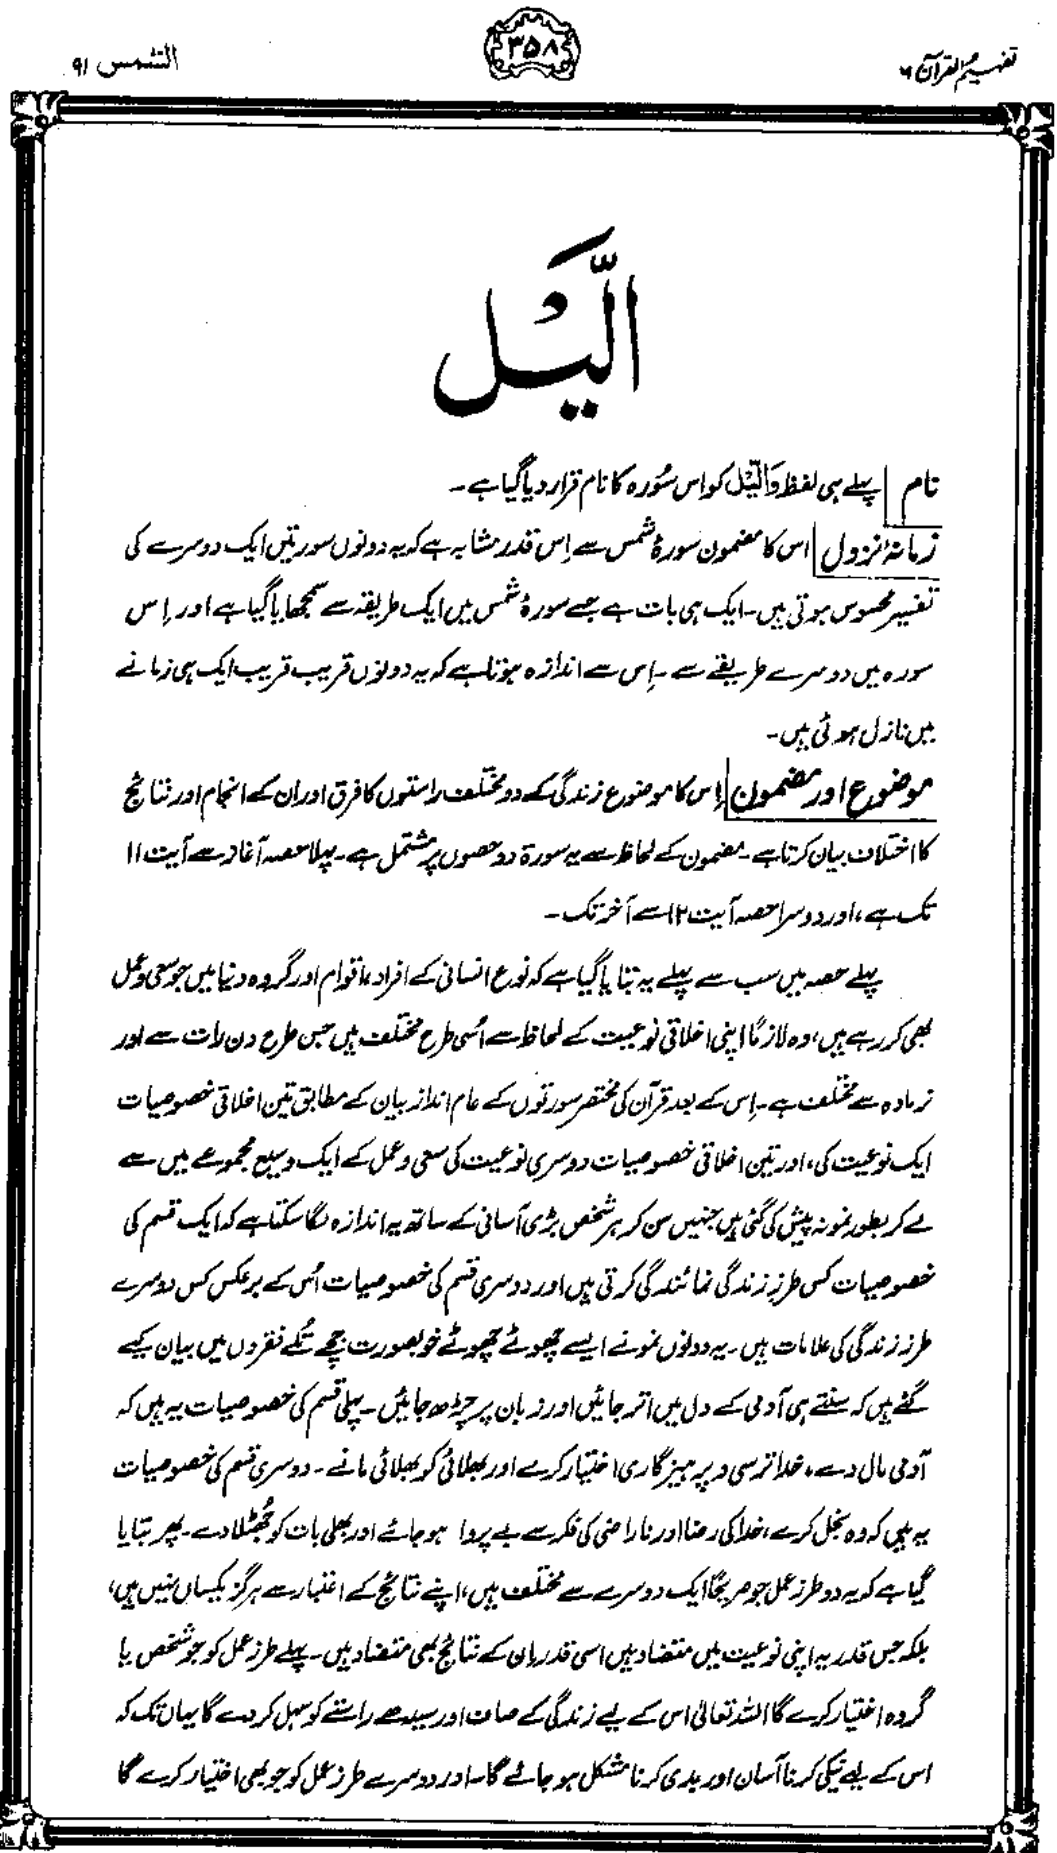 تفہیم القرآن ۶
۳۵۸
الشمس ۹۱
الَّیْل
نام پہلے ہی لفظ وَالَّیْل کو اس سُورہ کا نام قرار دیا گیا ہے۔
زمانۂ نزول اس کا مضمون سورۂ شمس سے اِس قدر مشابہ ہے کہ یہ دونوں سورتیں ایک دوسرے کی
تفسیر محسوس ہوتی ہیں۔ ایک ہی بات ہے جسے سورۂ شمس میں ایک طریقہ سے سمجھایا گیا ہے اور اِس
سورہ میں دوسرے طریقے سے۔ اِس سے اندازہ ہوتا ہے کہ یہ دونوں قریب قریب ایک ہی زمانے
میں نازل ہوئی ہیں۔
موضوع اور مضمون اِس کا موضوع زندگی کے دو مختلف راستوں کا فرق اور ان کے انجام اور نتائج
کا اختلاف بیان کرتا ہے۔ مضمون کے لحاظ سے یہ سورۃ دو حصوں پر مشتمل ہے۔ پہلا حصہ آغاز سے آیت ۱۱
تک ہے، اور دوسرا حصہ آیت ۱۲ سے آخر تک۔
پہلے حصہ میں سب سے پہلے یہ بتایا گیا ہے کہ نوع انسانی کے افراد، اقوام اور گروہ دنیا میں جو سعی و عمل
بھی کر رہے ہیں، وہ لازمًا اپنی اخلاقی نوعیت کے لحاظ سے اُسی طرح مختلف ہیں جس طرح دن رات سے اور
نر مادہ سے مختلف ہے۔ اِس کے بعد قرآن کی مختصر سورتوں کے عام انداز بیان کے مطابق تین اخلاقی خصوصیات
ایک نوعیت کی، اور تین اخلاقی خصوصیات دوسری نوعیت کی سعی و عمل کے ایک وسیع مجموعے میں سے
لے کر بطور نمونہ پیش کی گئی ہیں جنہیں سن کر ہر شخص بڑی آسانی کے ساتھ یہ اندازہ لگا سکتا ہے کہ ایک قسم کی
خصوصیات کس طرزِ زندگی نمائندگی کرتی ہیں اور دوسری قسم کی خصوصیات اُس کے برعکس کس دوسرے
طرز زندگی کی علامات ہیں۔ یہ دونوں نمونے ایسے چھوٹے چھوٹے خوبصورت جچے تُلے فقروں میں بیان کیے
گئے ہیں کہ سنتے ہی آدمی کے دل میں اتر جائیں اور زبان پر چڑھ جائیں۔ پہلی قسم کی خصوصیات یہ ہیں کہ
آدمی مال دے، خدا ترسی و پرہیزگاری اختیار کرے اور بھلائی کو بھلائی مانے۔ دوسری قسم کی خصوصیات
یہ ہیں کہ وہ بخل کرے، خدا کی رضا اور ناراضی کی فکر سے بے پروا ہو جائے اور بھلی بات کو جُھٹلا دے۔ پھر بتایا
گیا ہے کہ یہ دو طرز عمل جو صریحًا ایک دوسرے سے مختلف ہیں، اپنے نتائج کے اعتبار سے ہرگز یکساں نہیں ہیں،
بلکہ جس قدر یہ اپنی نوعیت میں متضاد ہیں اسی قدر اِن کے نتائج بھی متضاد ہیں۔ پہلے طرز عمل کو جو شخص یا
گروہ اختیار کرے گا اللہ تعالیٰ اس کے لیے زندگی کے صاف اور سیدھے راستے کو سہل کر دے گا یہاں تک کہ
اس کے لیے نیکی کرنا آسان اور بدی کرنا مشکل ہو جائے گا۔ اور دوسرے طرز عمل کو جو بھی اختیار کرے گا